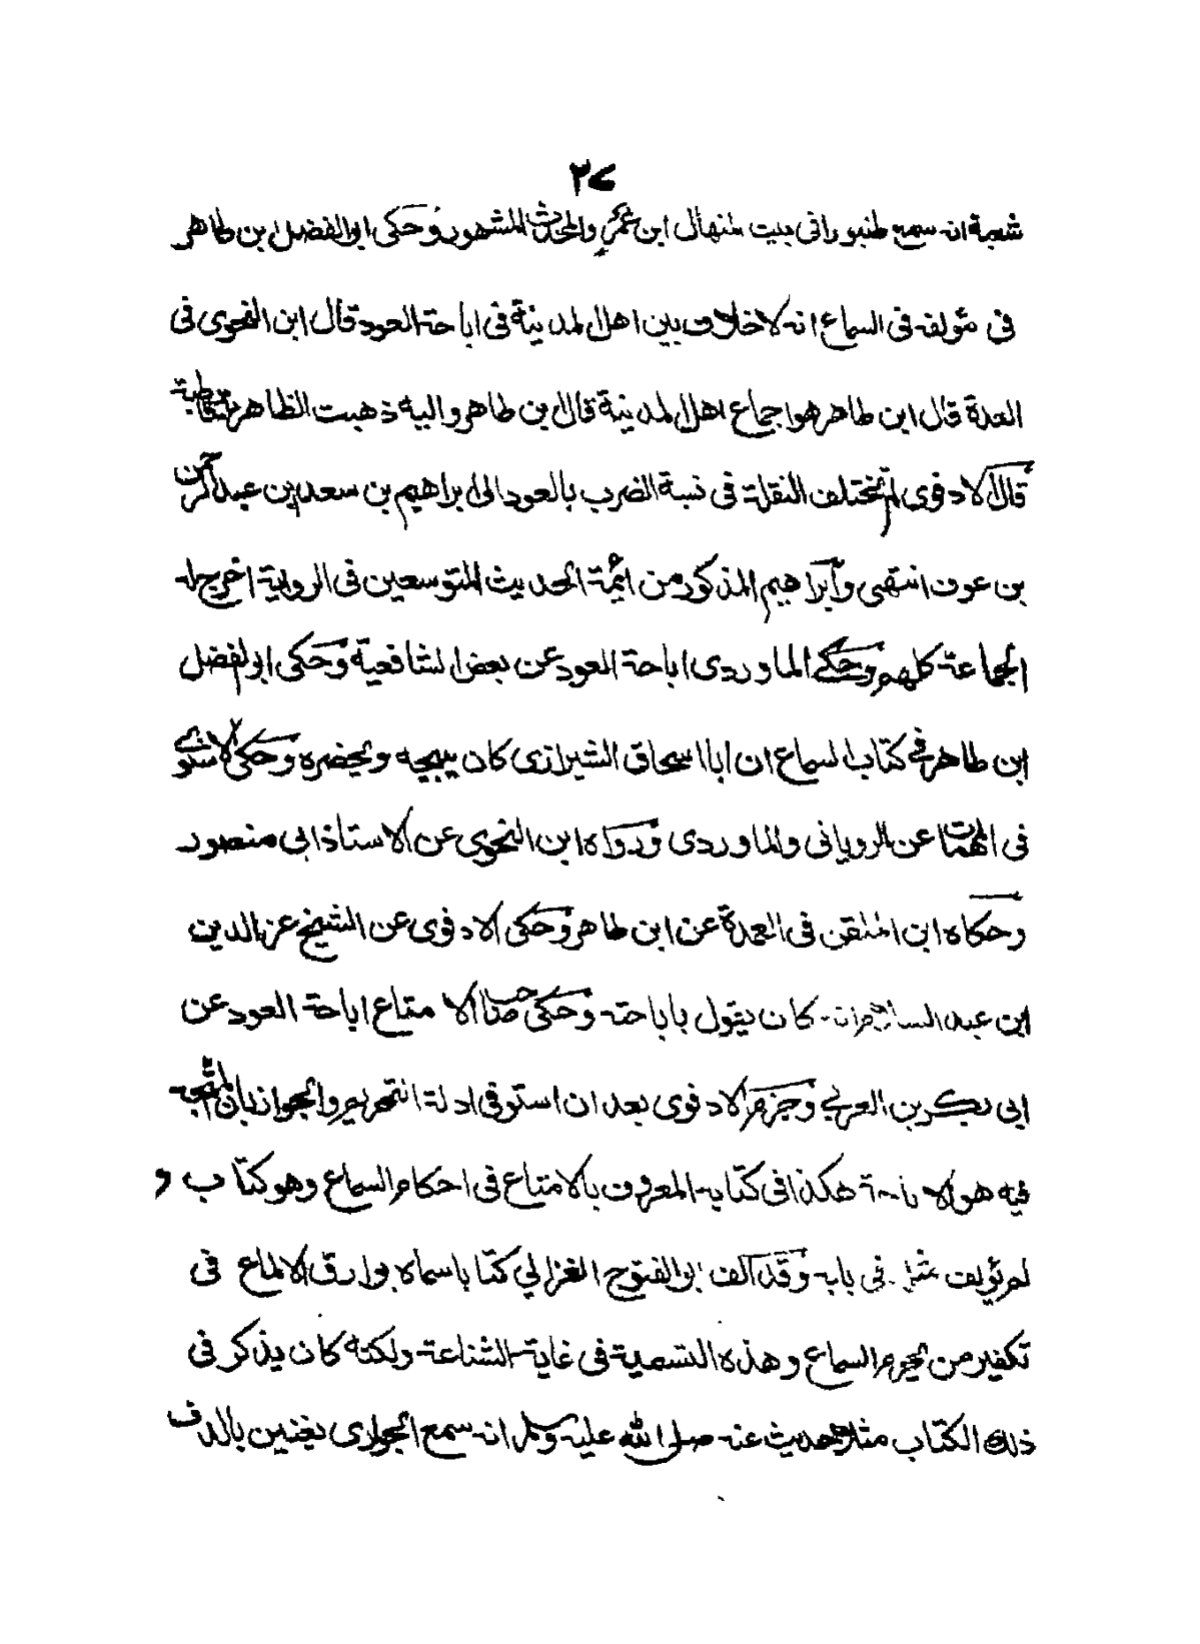 ٢٧
شعبة انه سمع طنبورا فى بيت المنهال ابن عمرو والمحدث المشهور وحكى ابو الفضل ابن طاهر
فى مؤلفه فى السماع انه لا خلاف بين اهل المدينة فى اباحة العود قال ابن النحوى فى
العمدة قال ابن طاهر هو اجماع اهل المدينة قال بن طاهر واليه ذهبت الظاهرية قاطبة
قال الادفوى لم تختلف النقلة فى نسبة الضرب بالعود الى ابراهيم بن سعد بن عبد الرحمن
بن عوف انتهى وابراهيم المذكور من ائمة الحديث المتوسعين فى الرواية اخرج له
الجماعة كلهم وحكى الماوردى اباحة العود عن بعض الشافعية وحكى ابو الفضل
ابن طاهر فى كتاب السماع ان ابا اسحاق الشيرازى كان يبيحه ويحضره وحكى الاسنوى
فى المهمات عن الرويانى والماوردى ورواه ابن النحوى عن الاستاذ ابى منصور
وحكاه ابن الملقن فى العمدة عن ابن طاهر وحكى الادفوى عن الشيخ عز الدين
ابن عبد السلام انه كان يقول باباحته وحكى صاحب الامتاع اباحة العود عن
ابى بكر بن العربي وجزم الادفوى بعد ان استوفى ادلة التحريم والجواز بان المتجه
فيه هو الاباحة هكذا فى كتابه المعروف بالامتاع فى احكام السماع وهو كتاب و
لم يؤلف مثله فى بابه وقد الف ابو الفتوح الغزالي كتابا سماه بوارق الالماع فى
تكفير من يحرم السماع وهذه التسمية فى غاية الشناعة ولكنه كان يذكر فى
ذلك الكتاب مثلا حديث عنه صلى الله عليه وسلم انه سمع الجوارى يغنين بالدف